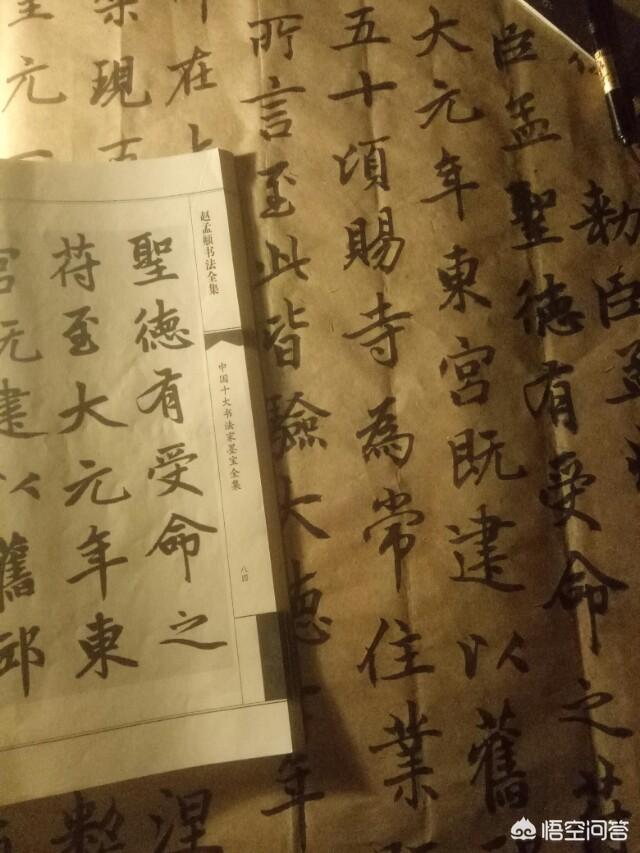 勅臣孟
臣孟聖德有受命之苻
大元年東宮既建以舊
五十頃賜寺為常住業
所言至此皆驗大德
年
在
現
元
涅
赵孟頫书法全集
中国十大书法家墨宝全集
八四
聖德有受命之
苻至大元年東
建以舊邸
悟空问答